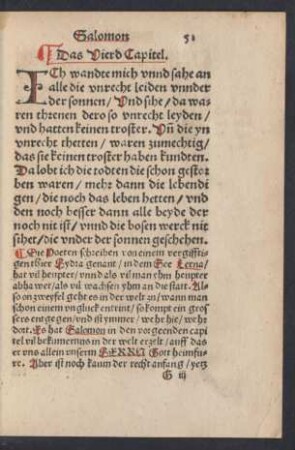 Salomon 51
Das Vierd Capitel.
ICh wandte mich vnnd sahe an
alle die vnrecht leiden vnnder
der sonnen/ Vnd sihe/ da wa-
ren threnen dero so vnrecht leyden/
vnd hatten keinen troster. Vñ die yn
vnrecht thetten/ waren zu mechtig/
das sie keinen troster haben kundten.
Da lobt ich die todten die schon gestor
ben waren/ mehr dann die lebendi
gen/ die noch das leben hetten/ vnd
den noch besser dann alle beyde der
noch nit ist/ vnnd die bosen werck nit
sihet/ die vnder der sonnen geschehen.
Die Poeten schreiben von einem vergifftig
en thier Hydra genant/ in dem See Lerna/
hat vil heupter/ vnnd als vil man ihm heupter
abhawet/ als vil wachsen yhm an die statt. Al-
so on zweyfel geht es in der welt zu/ wann man
schon einem vnglück entrint/ so kompt ein gros
sers entgegen/ vnd ist ymmer/ we hie/ we hyr
dort. Es hat Salomon in den vorgeenden capi
tel vil bekumernus in der welt erzelt/ auff das
er vns allein vnserm HERRN Gott heimfu-
re. Aber ist noch kaum der recht anfang/ yetz
G iij